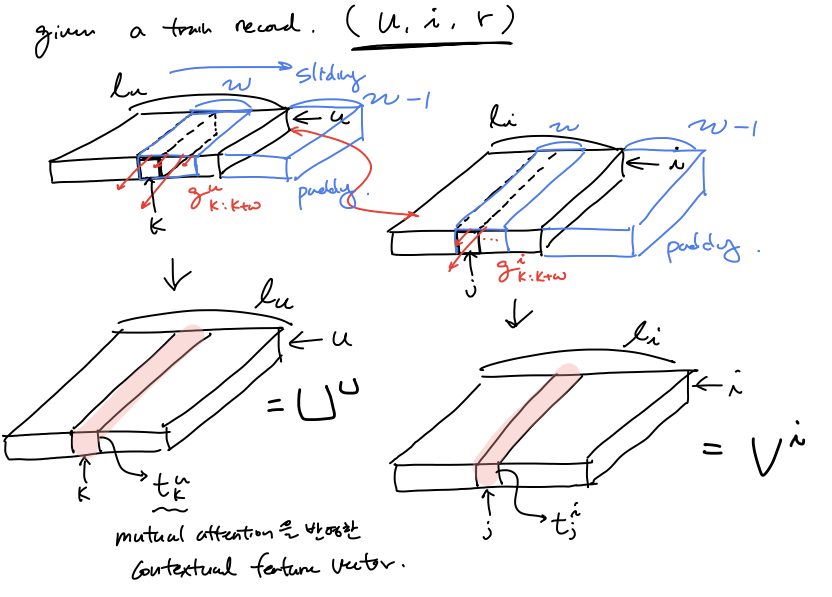 given a train record. (u, i, r)
sliding
lu
w
w-1
u
padding.
g^u_{k:k+w}
k
li
w
w-1
i
padding.
g^i_{k:k+w}
...
j
lu
u
= U^u
k
t^u_k
mutual attention을 반영한
contextual feature vector.
li
i
= V^i
j
t^i_j